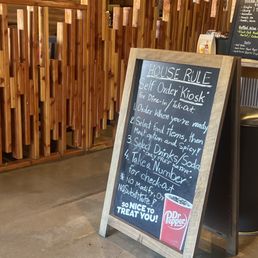 HOUSE RULE
Self Order Kiosk*
for Dine-In / Take-Out
1. Order When you're ready
2. Select Food Items, then
Meat option and Spicy
3. Select Drinks/Soda
4. Take a Number
for check-out
* No Modify, Or
Substitute!
SO NICE TO
TREAT YOU!
Dr Pepper